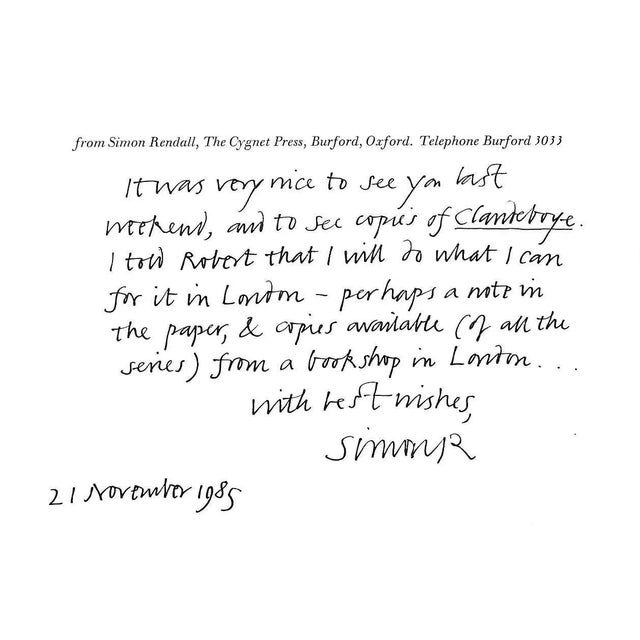 from Simon Rendall, The Cygnet Press, Burford, Oxford. Telephone Burford 3033
It was very nice to see you last
weekend, and to see copies of Clandeboye.
I told Robert that I will do what I can
for it in London – perhaps a note in
the paper, & copies available (of all the
series) from a bookshop in London . . .
with best wishes,
Simon R
21 November 1985